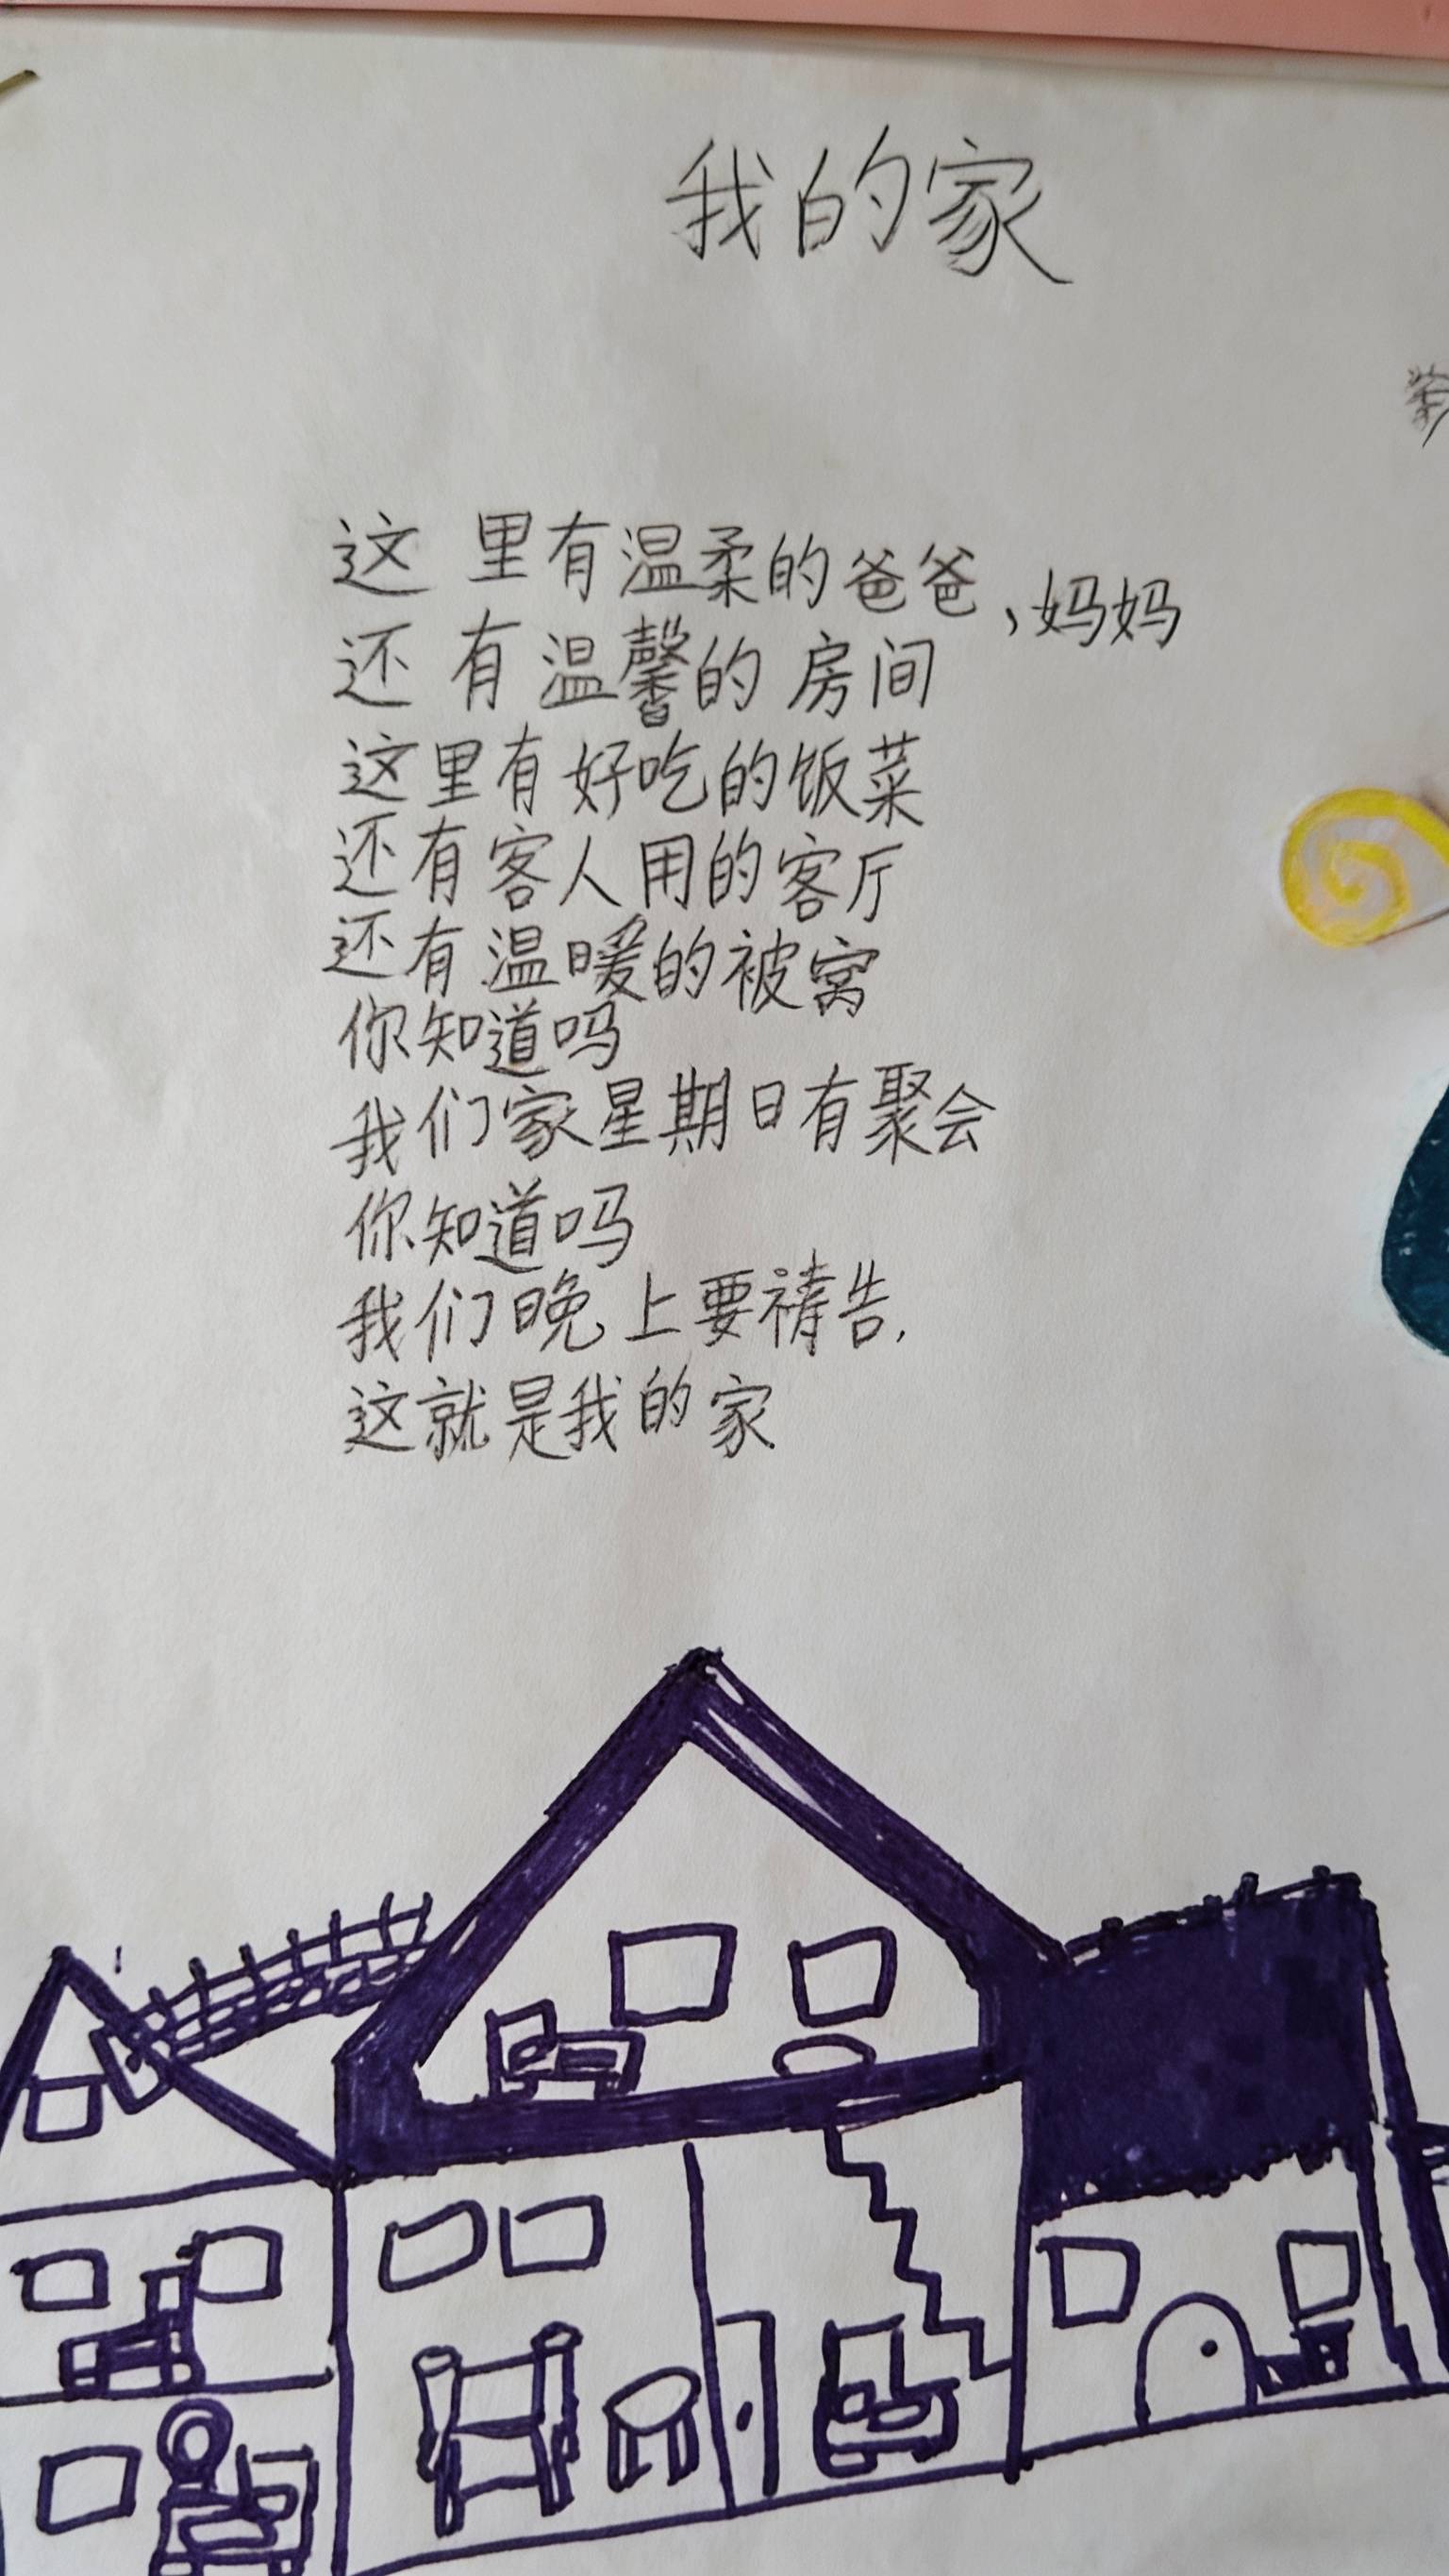 我的家
这里有温柔的爸爸、妈妈
还有温馨的房间
这里有好吃的饭菜
还有客人用的客厅
还有温暖的被窝
你知道吗
我们家星期日有聚会
你知道吗
我们晚上要祷告.
这就是我的家.